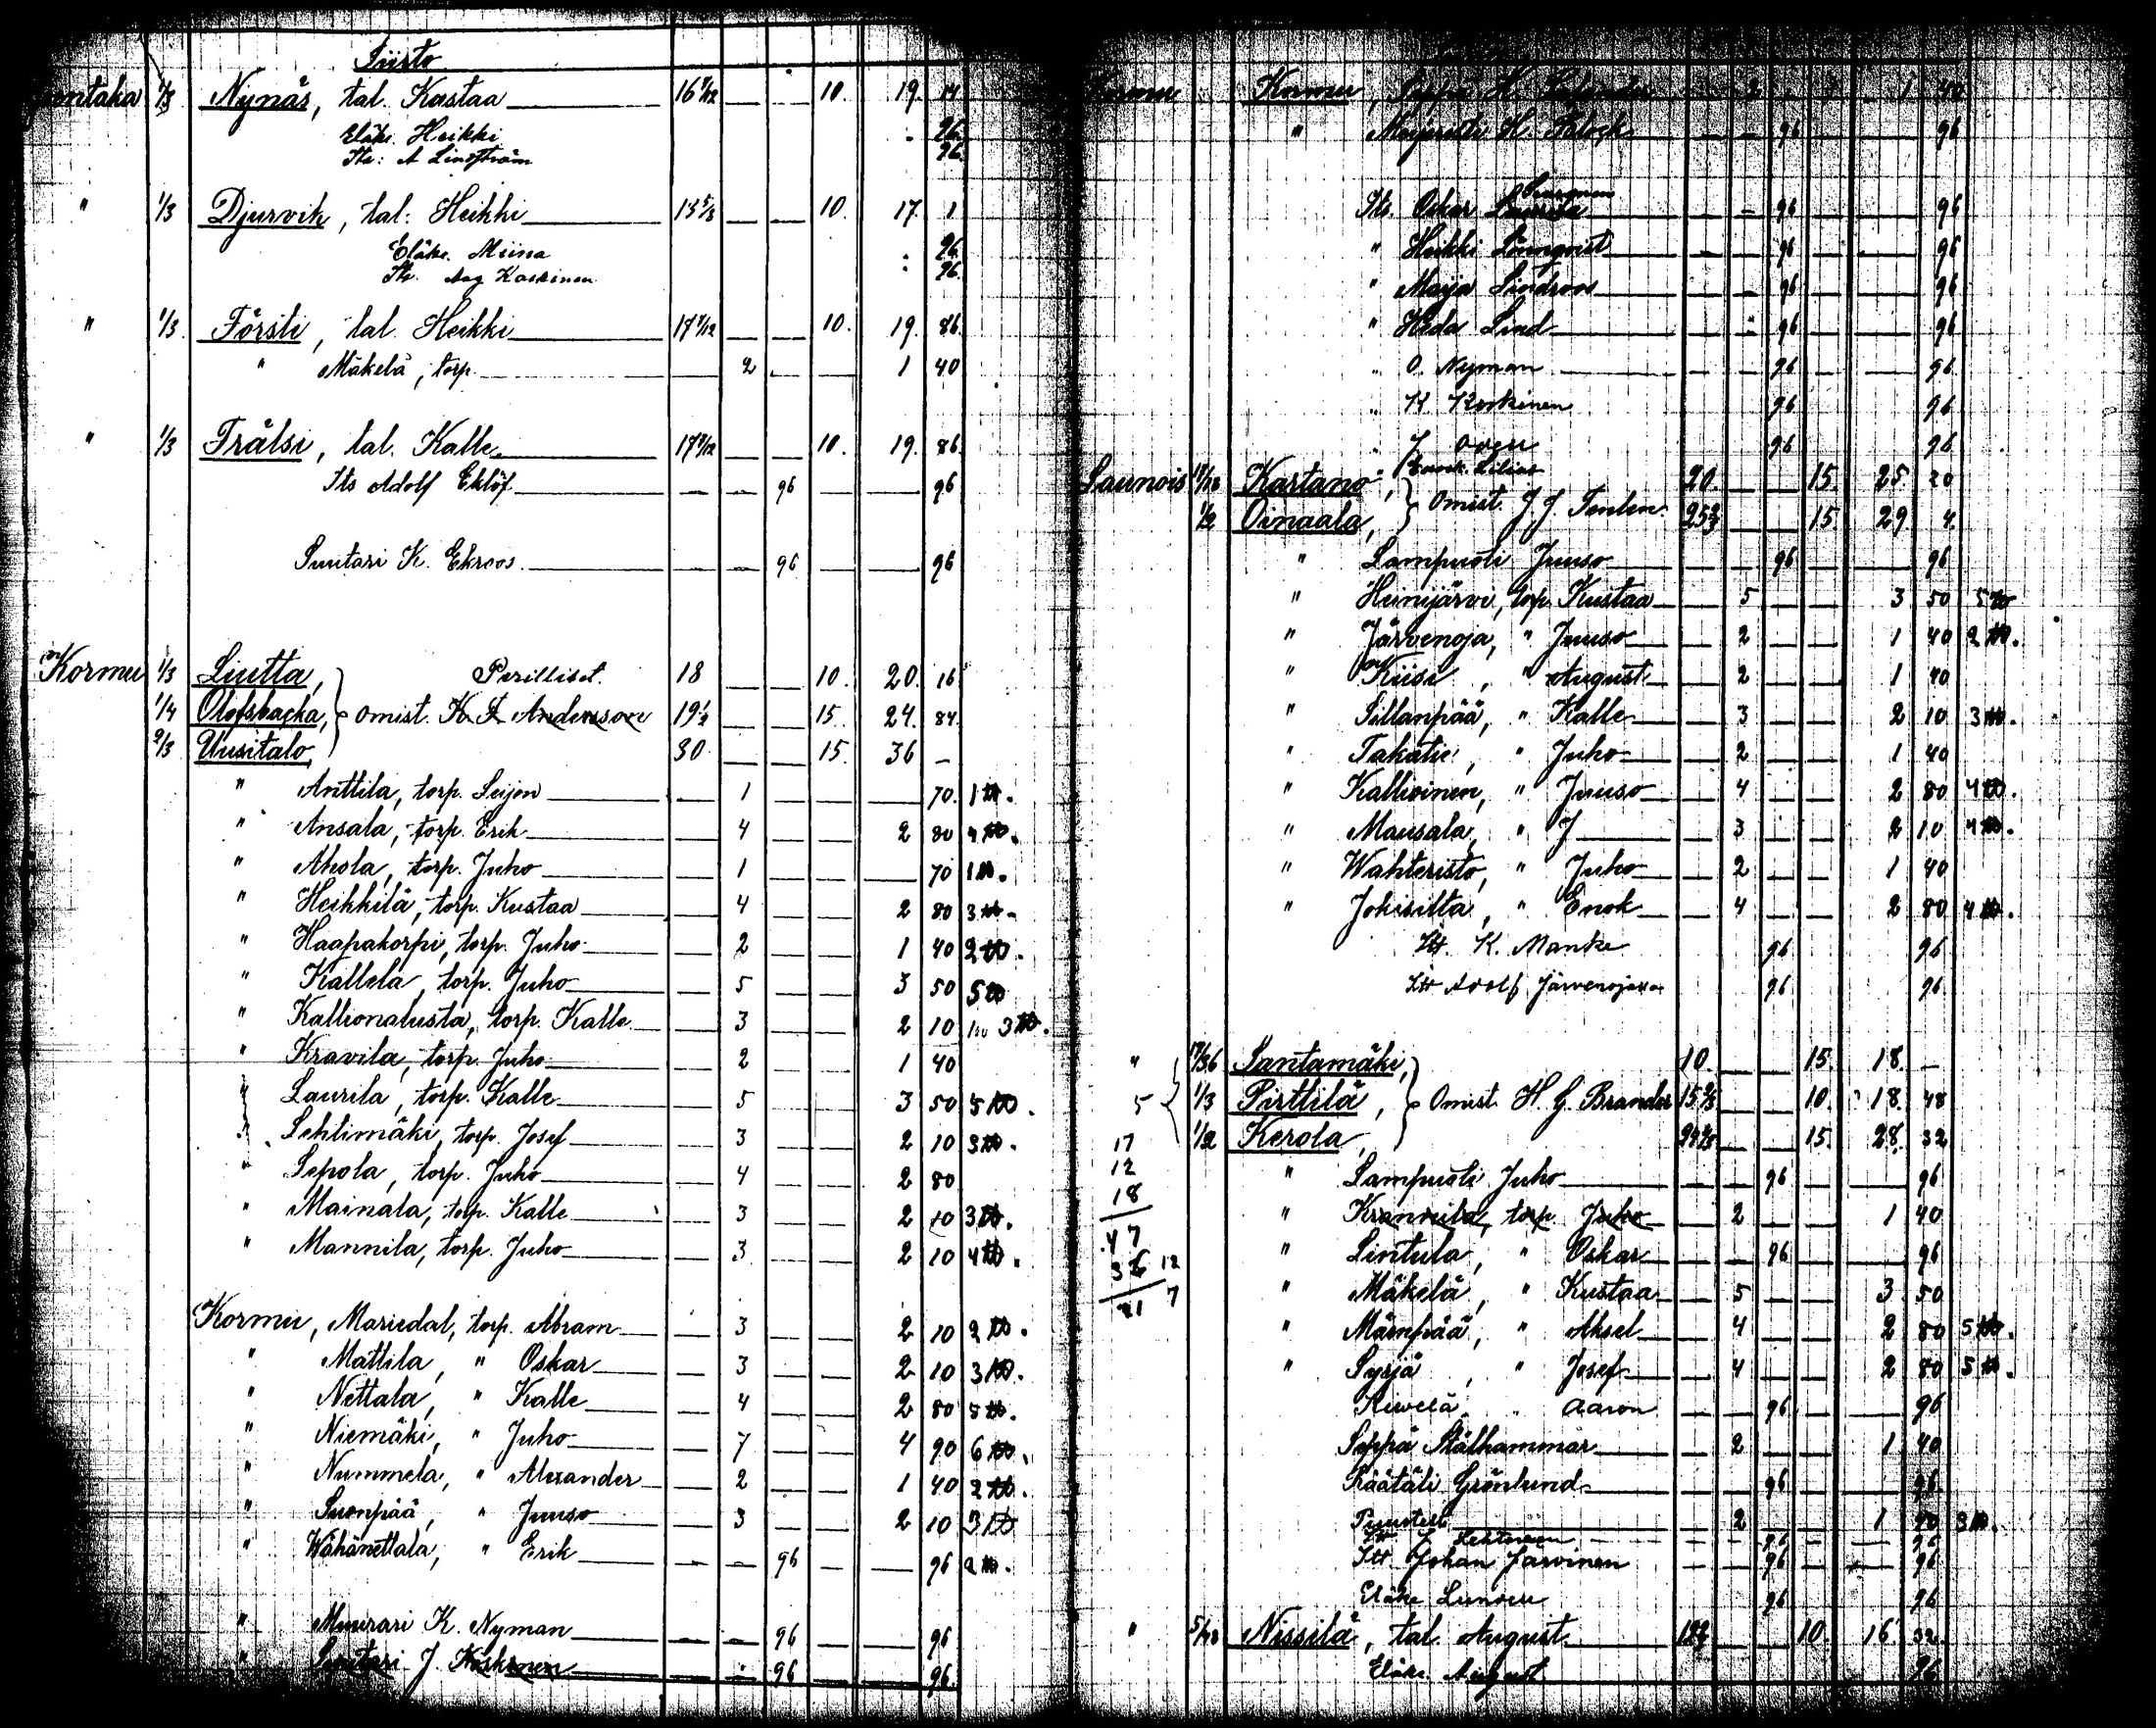 Siirto
1/3 Nynäs, tal. Kustaa 16 7/12 — — 10. 19. 14
Eläke. Heikki 96
Its: A Lindström 96
" 1/3 Djurvik, tal. Heikki 15 5/8 — — 10. 17. 1
Eläke. Miina 96
Its. Aug Koskinen 96
" 1/3 Försti, tal. Heikki 17 7/12 — — 10. 19. 86
" Mäkelä, torp. — 2 — — 1 40
" 1/3 Trälsi, tal. Kalle 17 7/12 — — 10. 19. 86
Its Adolf Eklöf — — 96 — — 96
Suutari K. Ekroos — — 96 — — 96
Kormu 1/3 Liutta, Perilliset. 18 — — 10. 20. 16
1/4 Olofsbacka, omist. K. F. Andersson 19 1/2 — — 15. 24. 84
2/3 Uusitalo, 30 — — 15. 36 —
" Anttila, torp. Seijon — 1 — — — 70. 1
" Ansala, torp. Erik — 4 — — 2 80 4
" Ahola, torp. Juho — 1 — — — 70 1
" Heikkilä, torp. Kustaa — 4 — — 2 80 3
" Haapakorpi, torp. Juho — 2 — — 1 40 2
" Kallela, torp. Juho — 5 — — 3 50 5
" Kallionalusta, torp. Kalle — 3 — — 2 10 3
" Kravila, torp. Juho — 2 — — 1 40
" Laurila, torp. Kalle — 5 — — 3 50 5
" Lehtimäki, torp. Josef — 3 — — 2 10 3
" Lepola, torp. Juho — 4 — — 2 80
" Mainala, torp. Kalle — 3 — — 2 10 3
" Mannila, torp. Juho — 3 — — 2 10 4
Kormu, Mariedal, torp. Abram — 3 — — 2 10 2
" Mattila, " Oskar — 3 — — 2 10 3
" Nettala, " Kalle — 4 — — 2 80 5
" Niemäki, " Juho — 7 — — 4 90 6
" Nummela, " Alexander — 2 — — 1 40 2
" Suonpää, " Juuso — 3 — — 2 10 3
" Wähänettala, " Erik — — 96 — — 96 2
" Muurari K. Nyman — — 96 — — 96
" Suutari J. Koskinen — — 96 — — 96.
Kormu Kormu, Seppä H. 2 — 1 40
" Meijeristi H. — — 96 — — 96
Suronen
Its. Oskar — — 96 — — 96
" Heikki Lönnqvist — — 96 — — 96
" Maija Lindroos — — 96 — — 96
" Hilda Lind — — 96 — — 96
" O. Nyman — — 96 — — 96
" K Koskinen 96 96
" J 96 96
Launois 17/18 Kartano, 20. — — 15. 25. 20
1/2 Oinaala, Omist. J. J. 25 2/3 — — 15 29 4
" Lampuoti Juuso — — 96 — — 96
" Heinijärvi, torp. Kustaa — 5 — — 3 50 5
" Järvenoja, " Juuso — 2 — — 1 40 2
" Kiisi, " August — 2 — — 1 40
" Sillanpää, " Kalle — 3 — — 2 10 3
" Takatie, " Juho — 2 — — 1 40
" Kallioinen, " Juuso — 4 — — 2 80 4
" Mausala, " J — 3 — — 2 10 4
" Wahteristo, " Juho — 2 — — 1 40
" Jokisilta, " Enok — 4 — — 2 80 4
Its. K. Manke 96 96
Its Adolf 96 96
" 17/36 Santamäki, 10. — — 15. 18. —
5 1/3 Pirttilä, Omist. H. G. Brander 15 2/3 — — 10. 18. 48
17 1/2 Kerola, — — 15. 28. 32
12 " Lampuoti Juho — — 96 — — 96
18 " Krannila, torp. Juho — 2 — — 1 40
47 " Lintula, " Oskar — — 96 — — 96
36 12
21 7 " Mäkelä, " Kustaa — 5 — — 3 50
" Mäenpää, " Aksel — 4 — — 2 80 5
" Syrjä, " Josef — 4 — — 2 80 5
Kiwelä, " Aaron — — 96 — — 96
Seppä Stålhammar — 2 — — 1 40
Räätäli Grönlund — — 96 — — 96
— 2 — — 1 40 3
Its J. Lehtinen — — 96 — — 96
Its Johan Järvinen — — 96 — — 96
Eläke 96 96
" 5/48 Nissilä, tal. August — — 10. 16. 32
Eläke. August. 96